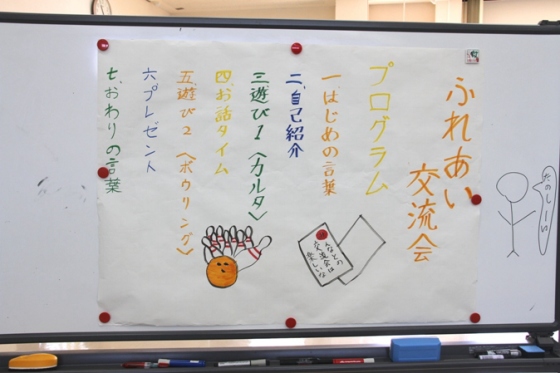 ふれあい
交流会
プログラム
一、はじめの言葉
二、自己紹介
三、遊び1〈カルタ〉
四、お話タイム
五、遊び2〈ボウリング〉
六、プレゼント
七、おわりの言葉
んなとの
交流会は
楽しいな
たのしーい